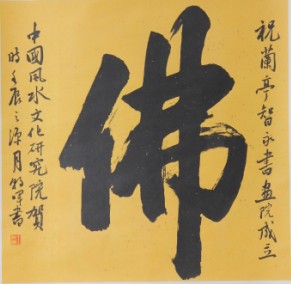 祝蘭亭智永書画院成立
佛
中國風水文化研究院賀
時壬辰之深月
書